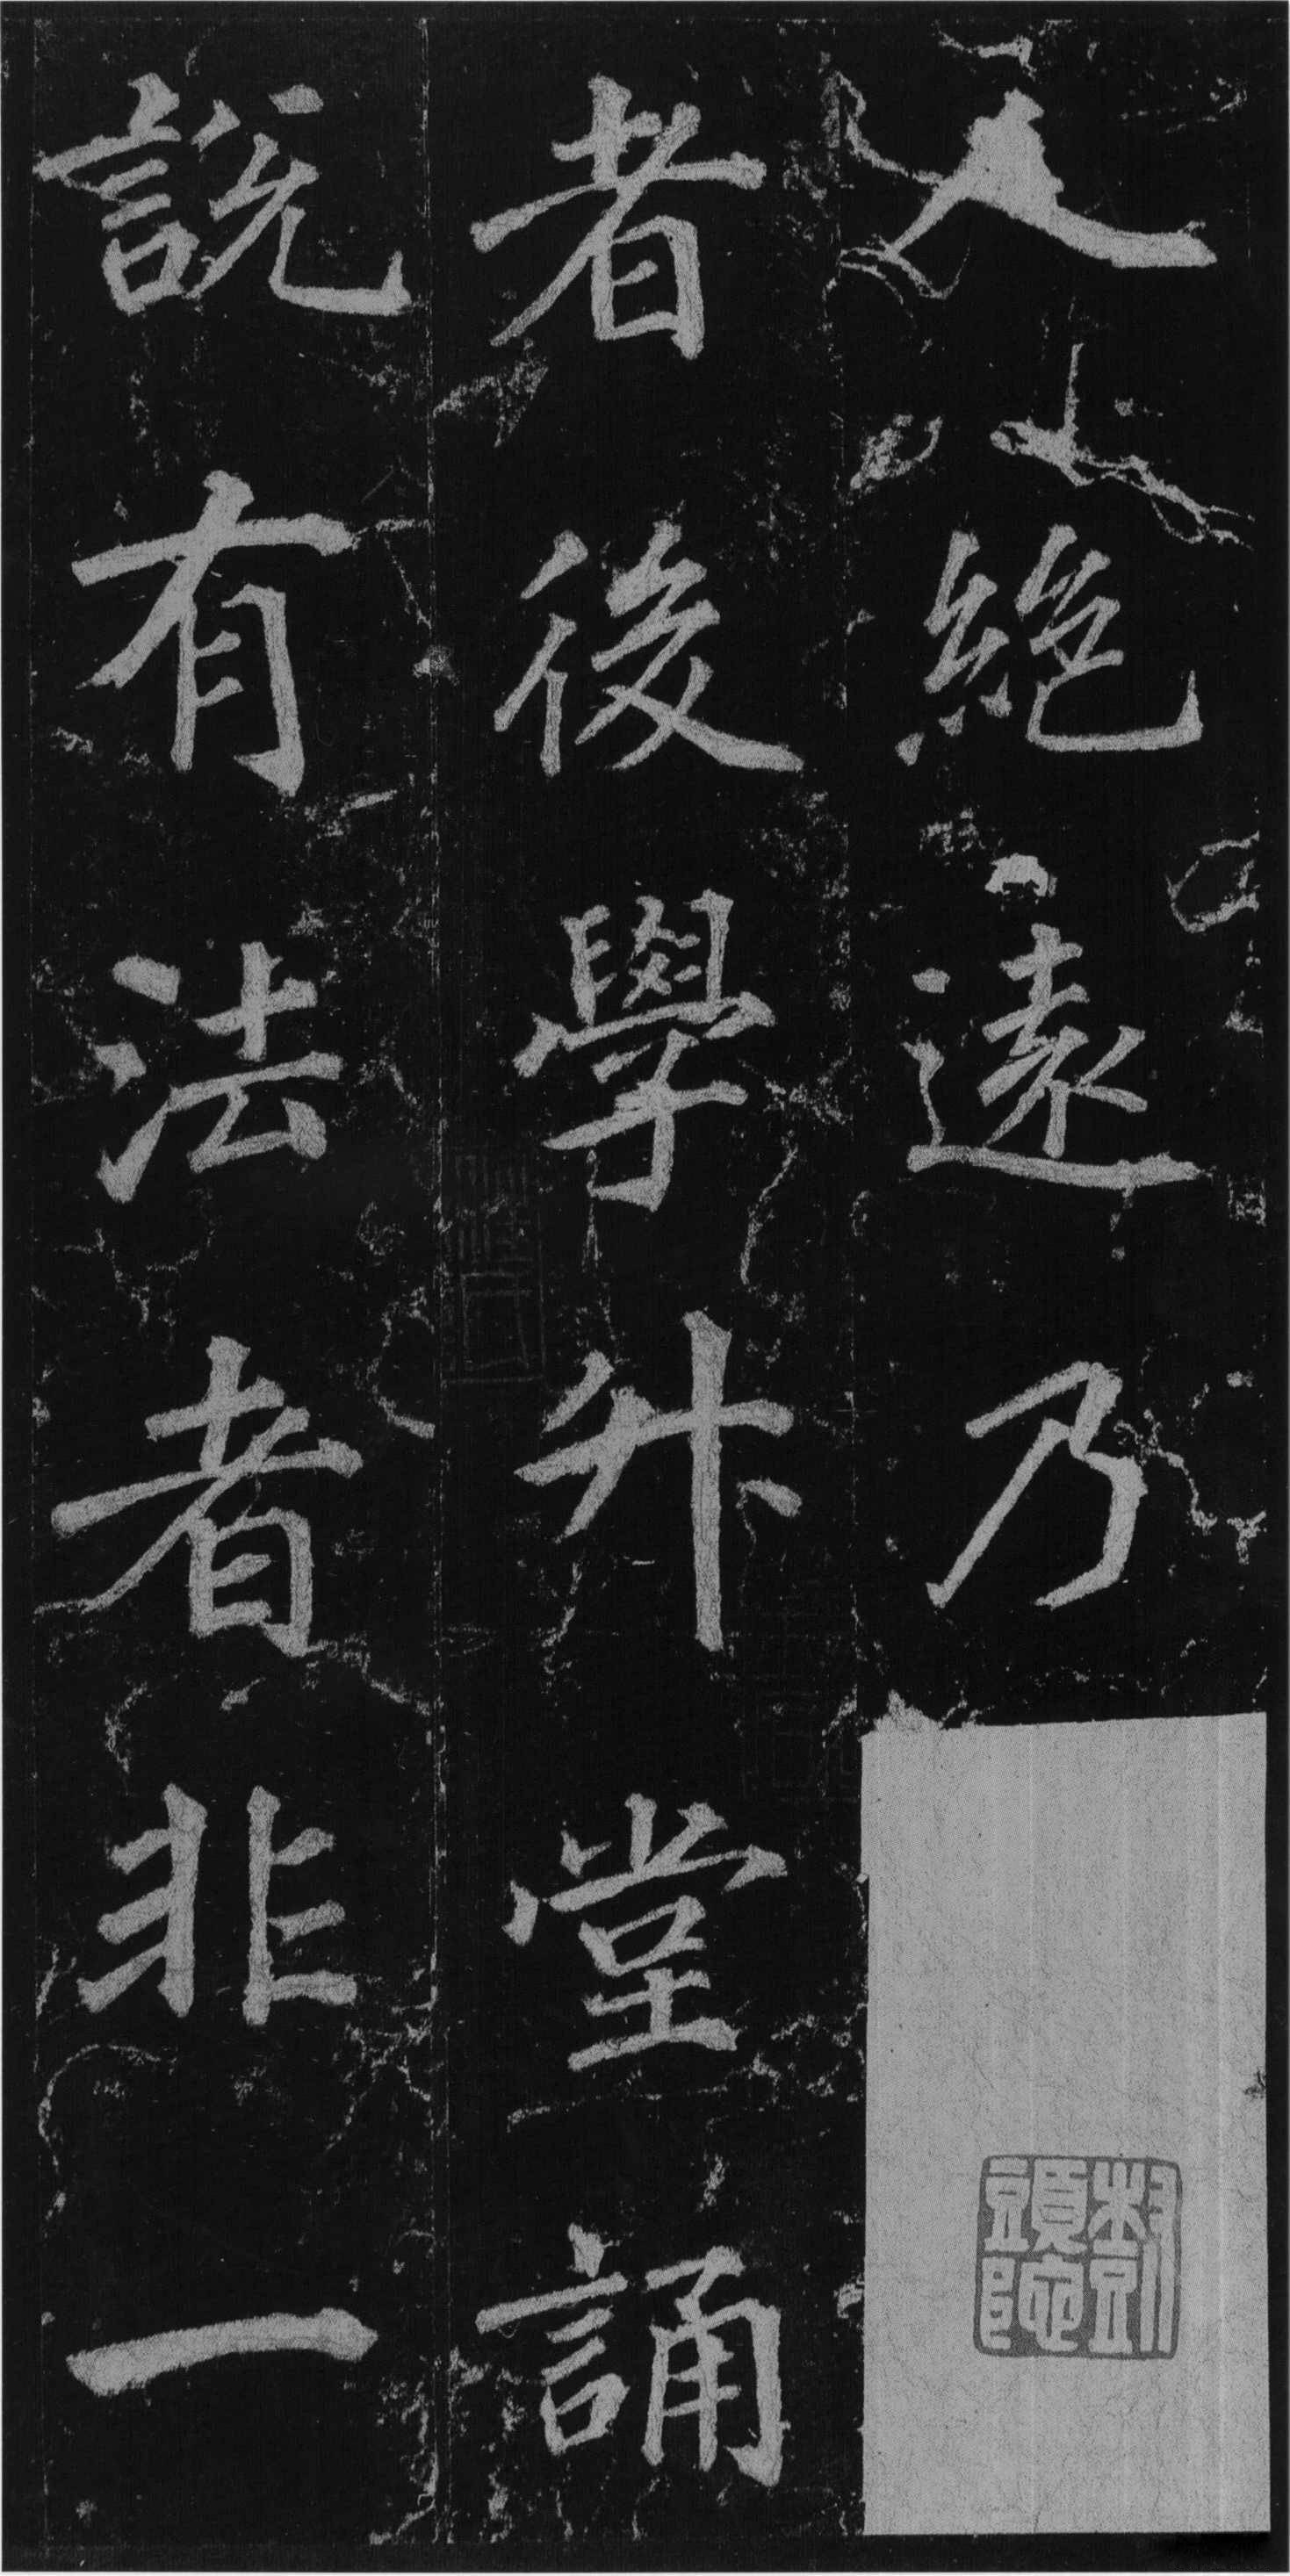 人絕遠乃
者後學升堂誦
說有法者非一